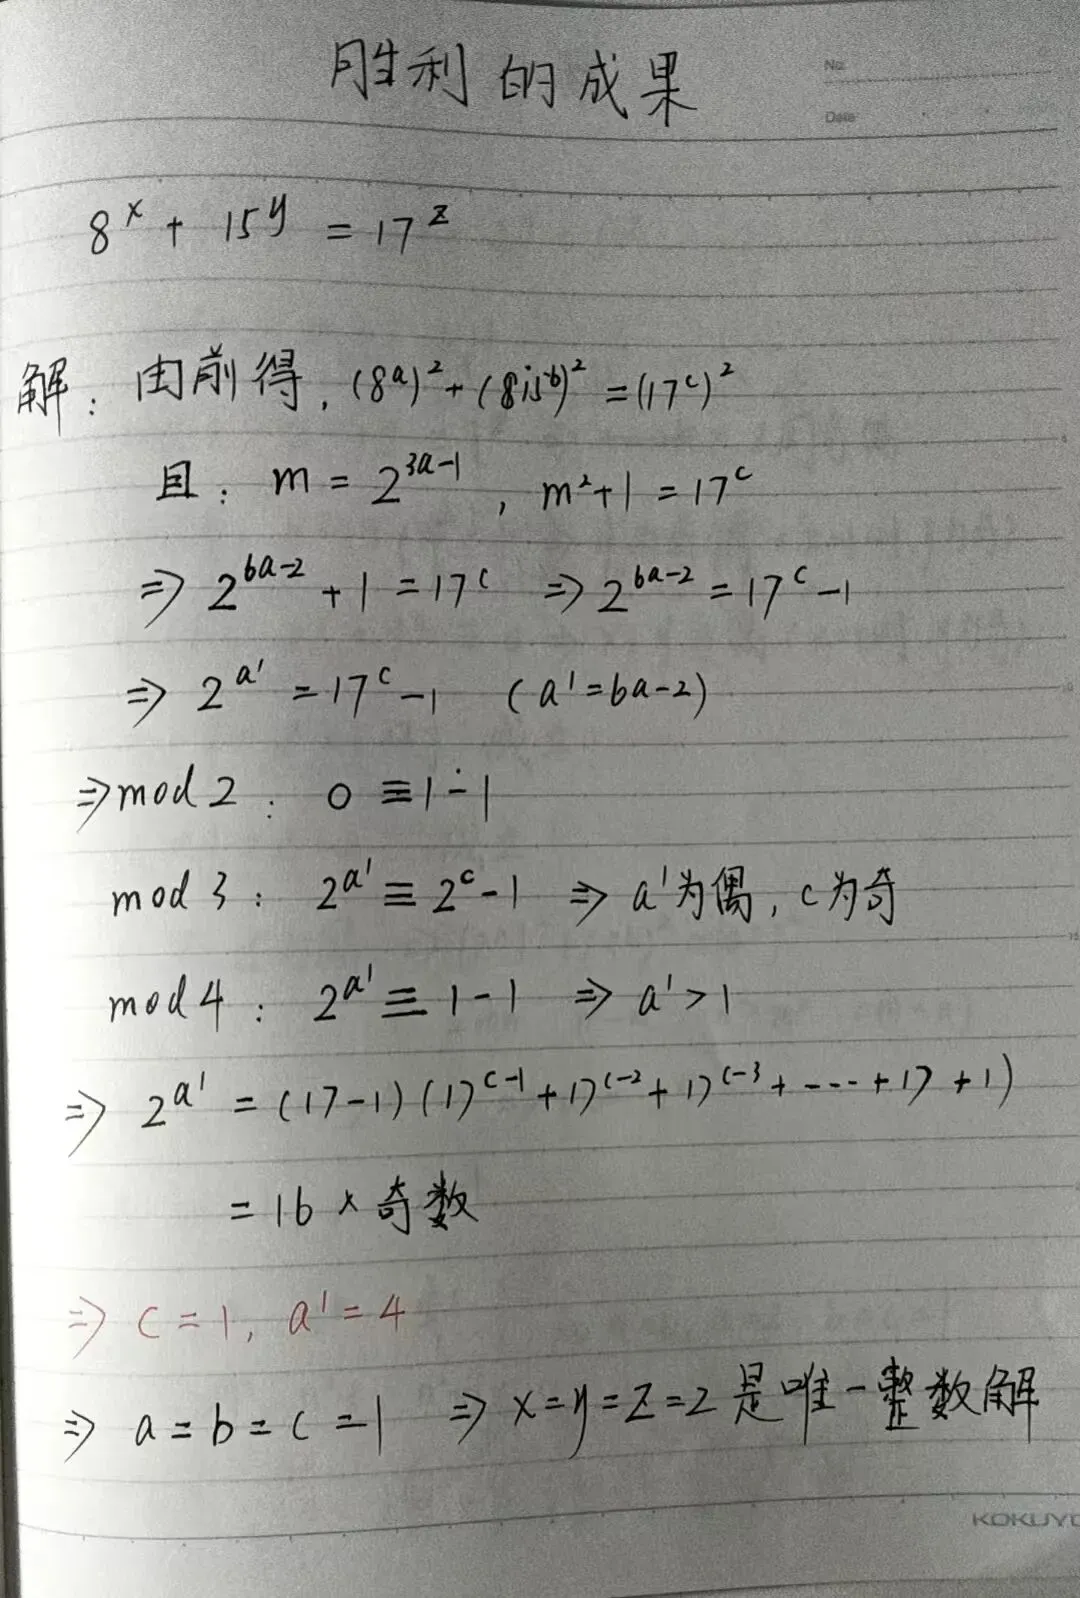 胜利的成果
No.
Date
8^x + 15^y = 17^z
解：由前得，(8^a)^2+(815^b)^2=(17^c)^2
且：m = 2^{3a-1}，m^2+1=17^c
⇒ 2^{6a-2}+1=17^c ⇒ 2^{6a-2}=17^c-1
⇒ 2^{a'}=17^c-1 (a'=6a-2)
⇒ mod 2：0≡1-1
mod 3：2^{a'}≡2^c-1 ⇒ a'为偶，c为奇
mod 4：2^{a'}≡1-1 ⇒ a'>1
⇒ 2^{a'}=(17-1)(17^{c-1}+17^{c-2}+17^{c-3}+----+17+1)
=16×奇数
⇒ c=1，a'=4
⇒ a=b=c=1 ⇒ x=y=z=2是唯一整数解
KOKUYO